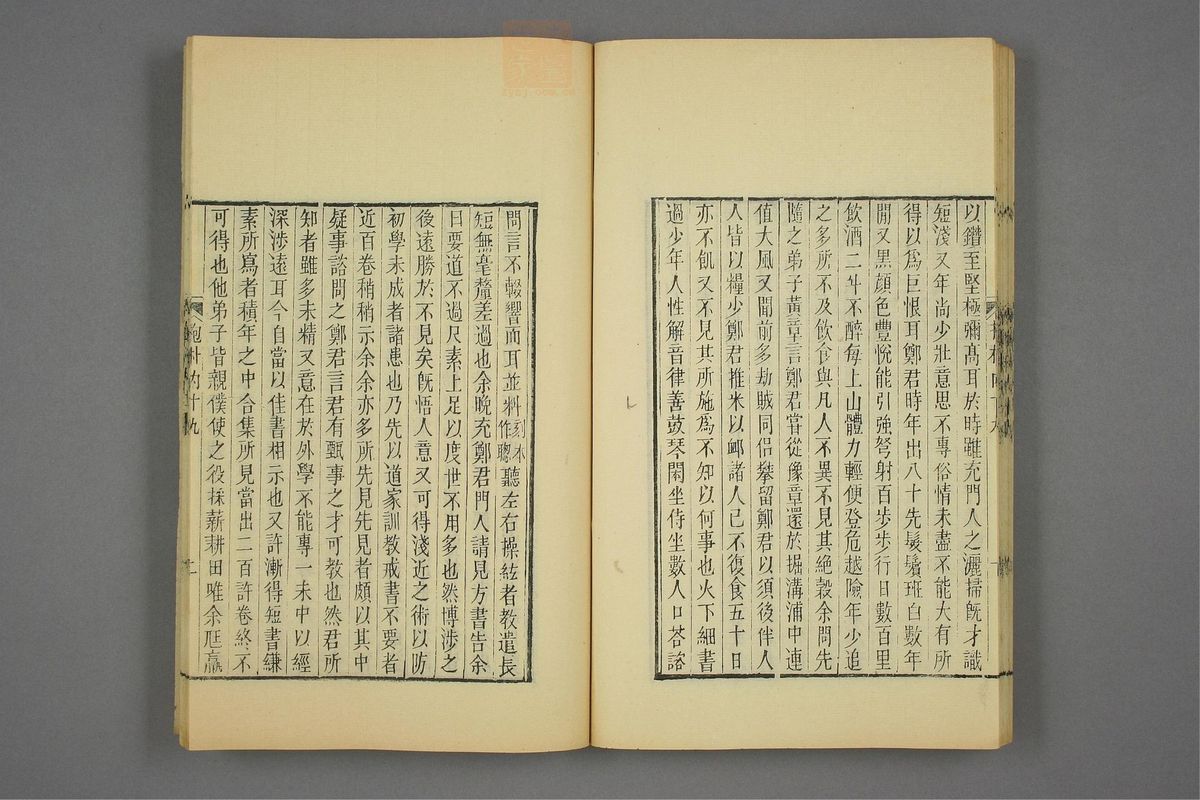 以鑽至堅極彌高耳於時雖充門人之灑掃旣才識
短淺又年尚少壯意思不專俗情未盡不能大有所
得以爲巨恨耳鄭君時年出八十先髮鬢班白數年
閒又黒顔色豐悅能引強弩射百步步行日數百里
飲酒二斗不醉每上山體力輕便登危越險年少追
之多所不及飲食與凡人不異不見其絶穀余問先
隨之弟子黃章言鄭君嘗從豫章還於掘溝浦中連
值大風又聞前多劫賊同侶攀留鄭君以須後伴人
人皆以糧少鄭君推米以䘏諸人己不復食五十日
亦不飢又不見其所施爲不知以何事也火下細書
過少年人性解音律善鼓琴閑坐侍坐數人口荅諮
問言不輟響而耳並料刻本作聰聽左右操絃者教遣長
短無毫釐差過也余晚充鄭君門人請見方書告余
曰要道不過尺素上足以度世不用多也然博涉之
後遠勝於不見矣旣悟人意又可得淺近之術以防
初學未成者諸患也乃先以道家訓教戒書不要者
近百卷稍稍示余余亦多所先見先見者頗以其中
疑事諮問之鄭君言君有甄事之才可教也然君所
知者雖多未精又意在於外學不能專一未中以經
深涉遠耳今自當以佳書相示也又許漸得短書縑
素所寫者積年之中合集所見當出二百許卷終不
可得也他弟子皆親僕使之役採薪耕田唯余尫羸
抱朴内十九
二